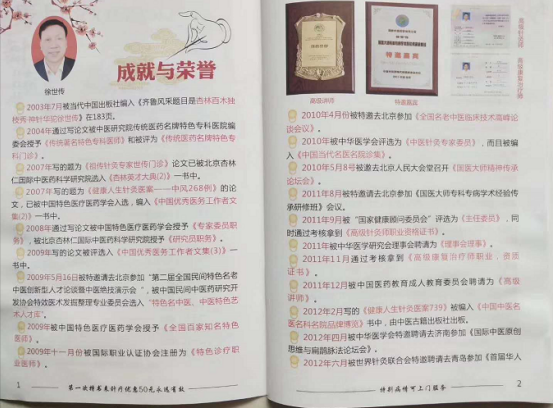 徐世传
成就与荣誉
2003年7月被当代中国出版社编入《齐鲁风采题目是杏林百木独
技秀神针华驼徐世传》在183页。
2004年通过写论文被中医研究院传统医药名牌特色专科医院编
委会授予《传统著名特色专科医师》和被评为《传统医药名牌特色专
科门诊》。
2007年写的题为《祖传针灸专家世传门诊》论文已被北京杏林
仁国际中医药科学研究院选入《杏林英才大典(2)》一书中。
2007年写的题为《健康人生针灸医案——中风268例》的论
文，已被中国特色医疗医药学会入选，编入《中国优秀医务工作者文
集(2)》一书中。
2008年通过写论文被中国特色医疗医药学会授予《专家委员职
务》，被北京杏林仁国际中医药科学研究院授予《研究员职务》。
2009年写的论文被评选入《中国优秀医务工作者文集(3)》一
书中。
2009年5月16日被特邀请去北京参加“第二届全国民间特色名老
中医创新型人才论谈暨中医绝技演示会”，被中国民间中医药研究开
发协会特效医术发掘整理专业委员会选入“特色名中医、中医特色艺
术人才库”。
2009年被中国特色医疗医药学会授予《全国百家知名特色
医师》。
2009年十一月份被国际职业认证协会注册为《特色诊疗职
业医师》。
1
第一次持书来针疗优惠50元永远有效
高级讲师
特邀嘉宾
高级针灸师
高级康复治疗师
2010年4月份被特邀去北京参加《全国名老中医临床技术高峰论
谈会议》。
2010年被中华医学会评选为《中医针灸专家委员》，而且被编
入《中国当代名医名院珍集》。
2010年5月8号被邀去北京人民大会堂召开《国医大师精神传承
论坛会》。
2011年8月被特邀请去北京参加《国医大师专科专病学术经验传
承研修班》会议。
2011年9月被“国家健康顾问委员会”评选为《主任委员》，同
时通过考核拿到《高级针灸师职业资格证书》。
2011年被中华医学研究会理事会聘请为《理事会理事》。
2011年11月通过考核拿到《高级康复治疗师职业，资质
证书》。
2011年被中国医药教育成人教育委员会聘请为《高级
讲师》。
2012年2月写的《健康人生针灸医案739》被编入《中国中医名
医名科名院品牌博览》书中，由中医古籍出社出版。
2012年四月被中华医学会特邀聘请去济南参加《国际中医原创
思维与扁鹊脉法论坛会》。
2012年六月被世界针灸联合会特邀聘请去青岛参加《首届华人
特别病情可上门服务
2